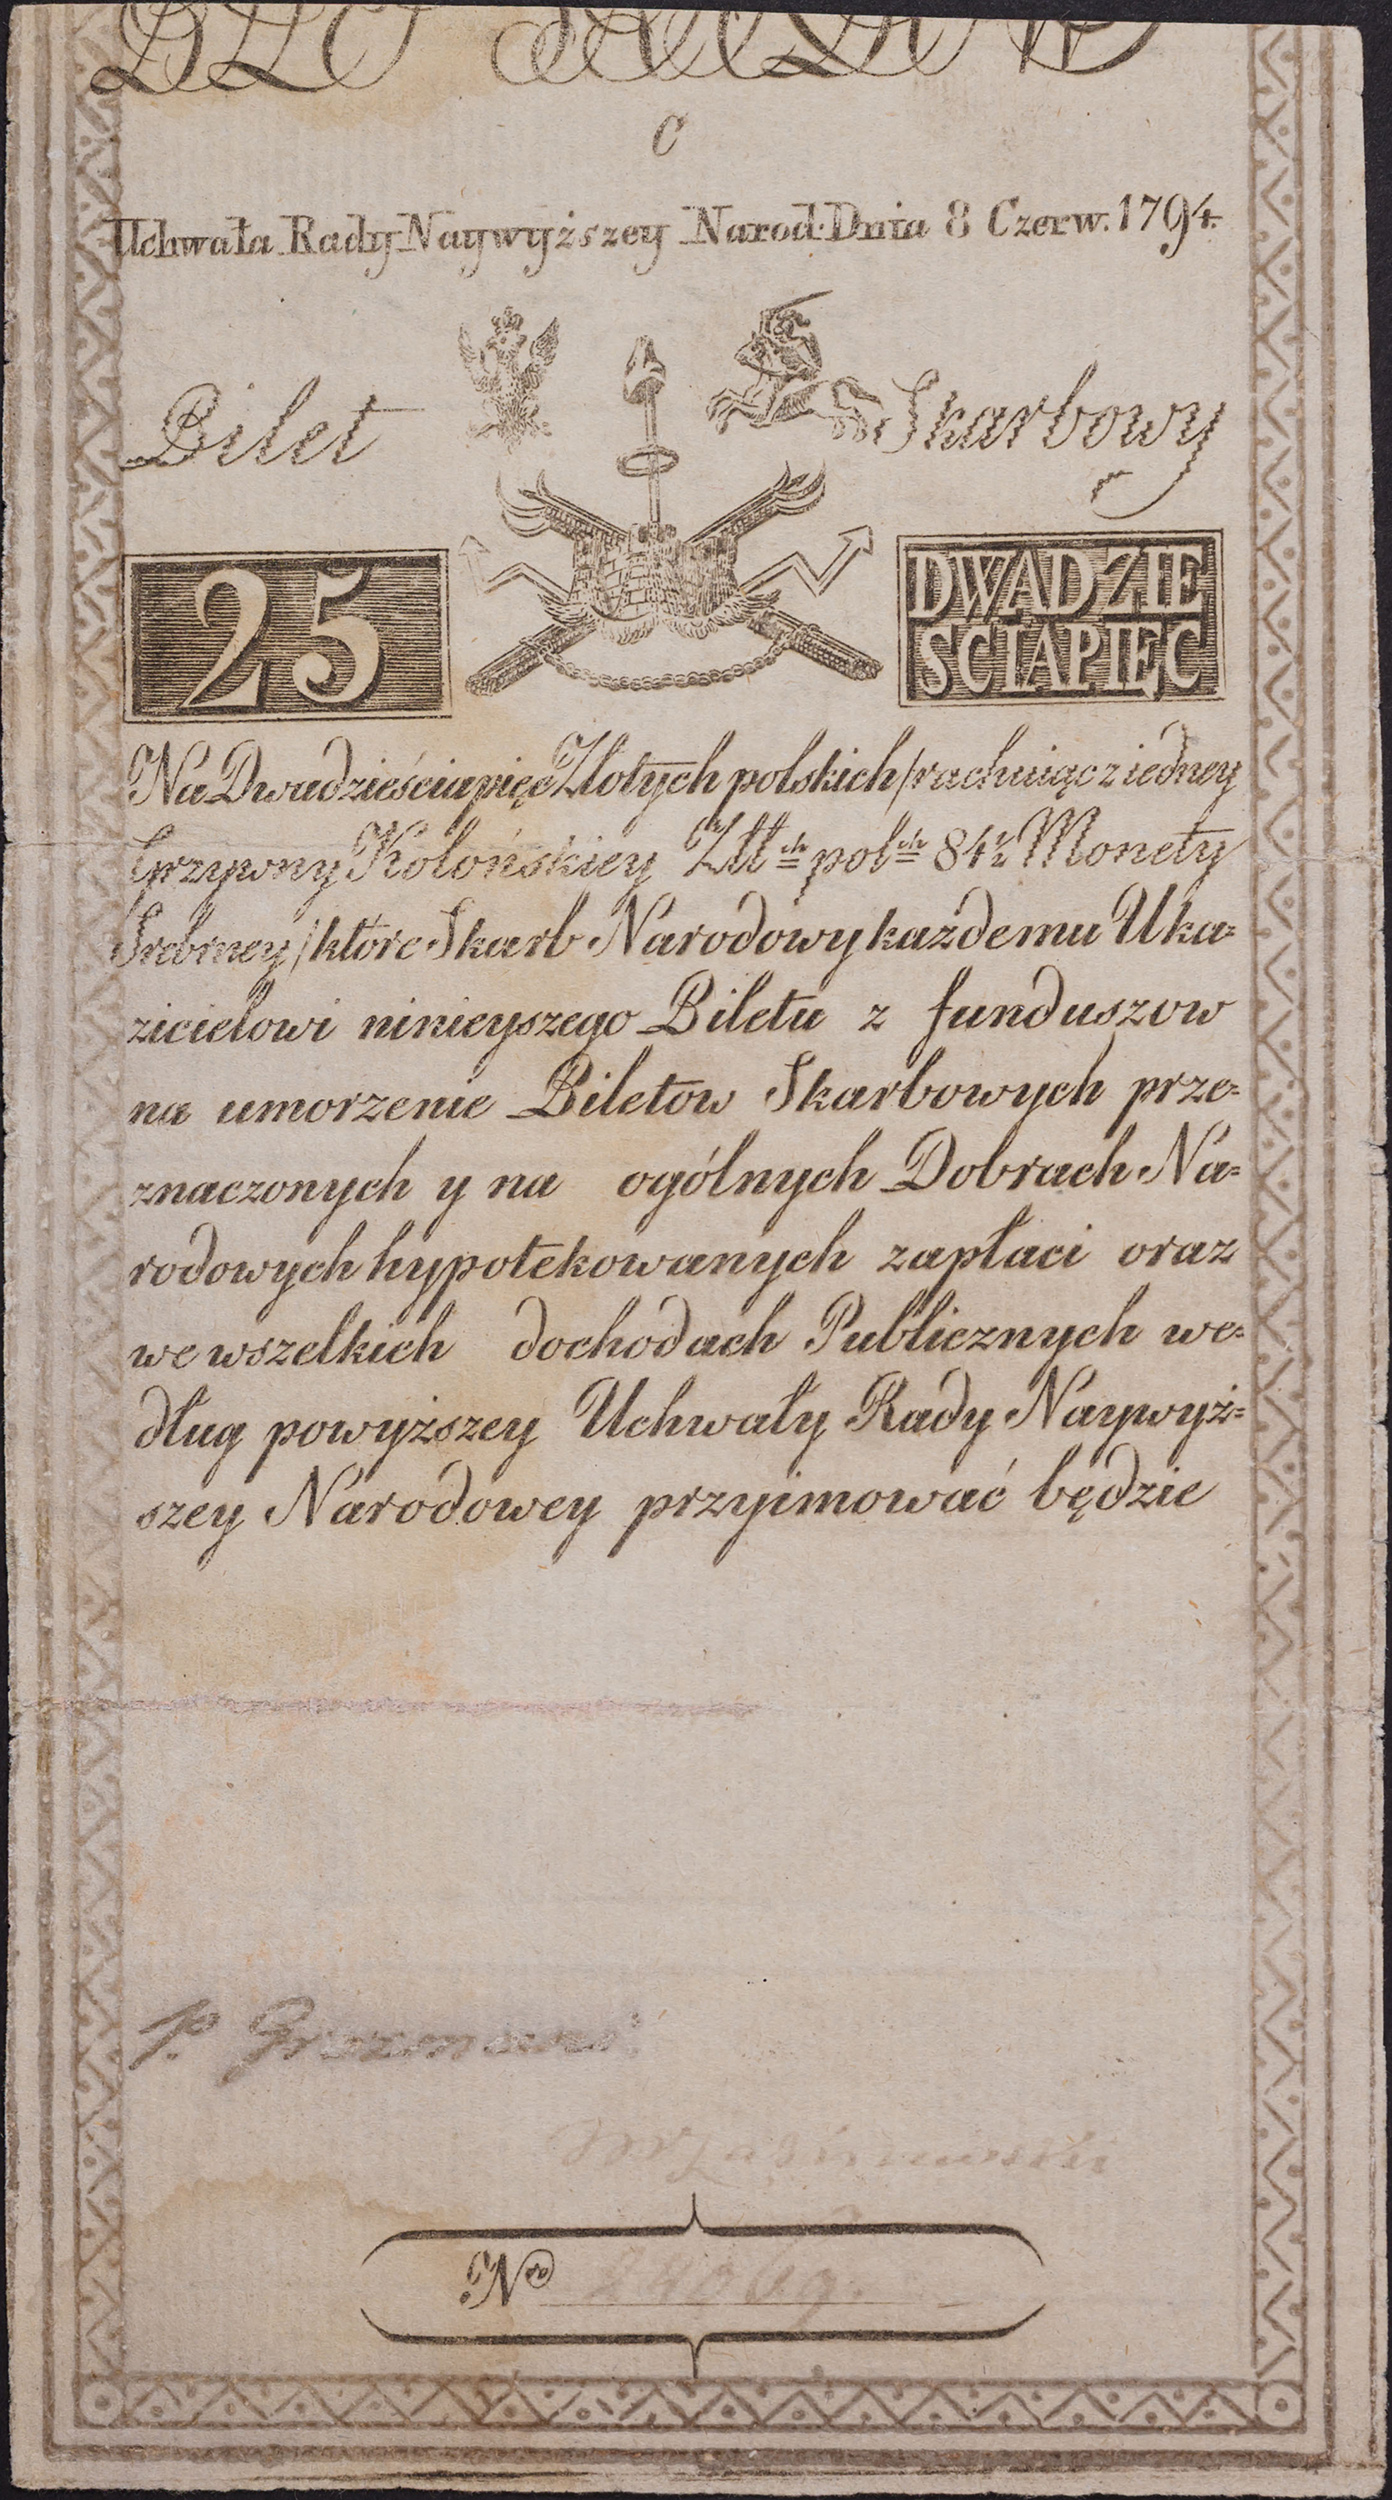 C
Uchwała Rady Naywyższey Narod. Dnia 8 Czerw. 1794.
Bilet Skarbowy
25
DWADZIE
SCIAPIĘC
Na Dwadzieściapięć Złotych polskich /rachuiąc z iedney
Grzywny Kolońskiey Złł:ch pol:ch 84½ Monety
Srebrney/ które Skarb Narodowy każdemu Uka=
zicielowi ninieyszego Biletu z funduszow
na umorzenie Biletow Skarbowych prze=
znaczonych y na ogólnych Dobrach Na=
rodowych hypotekowanych zapłaci oraz
we wszelkich dochodach Publicznych we=
dług powyższey Uchwały Rady Naywyż=
szey Narodowey przyimować będzie
P.
No